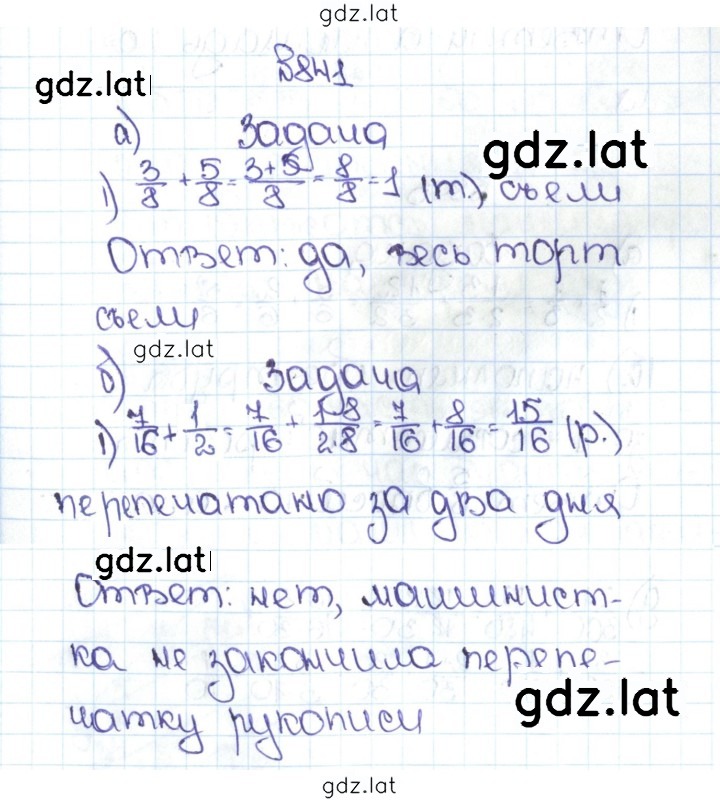 gdz.lat
№841
gdz.lat
а) Задача
gdz.lat
1) 3/8 + 5/8 = 3+5/8 = 8/8 = 1 (т.) съели
Ответ: да, весь торт
съели
gdz.lat
б) Задача
1) 7/16 + 1/2 = 7/16 + 1·8/2·8 = 7/16 + 8/16 = 15/16 (р.)
перепечатано за два дня
gdz.lat
Ответ: нет, машинист-
ка не закончила перепе-
чатку рукописи
gdz.lat
gdz.lat